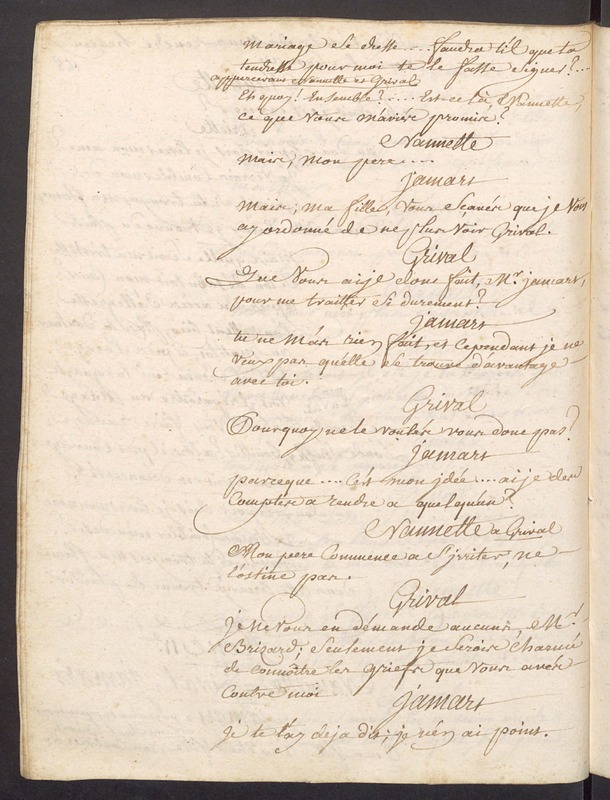 mariage se dresse ... faudra t'il que ta
tendresse pour moi te le fasse signer? ...
appercevant Nannette et Grival
Eh quoy! Ensemble? .... Est-ce là, Nannette,
ce que vous m'aviés promis?
Nannette
mais, mon pere ....
jamars
mais, ma fille, vous scavés que je vous
ay ordonné de ne plus voir Grival.
Grival
Que vous ai je donc fait, Mr. jamars,
pour me traitter si durement?
jamars
tu ne m'as rien fait, et cependant je ne
veux pas qu'elle se trouve d'avantage
avec toi.
Grival
Pourquoy ne le voulés vous donc pas?
jamars
parceque .... C'est mon jdée .... ai je des
Comptes a rendre a quelqu'un?
Nannette a Grival
Mon pere Commence a s'jrriter, ne
l'ostine pas.
Grival
je ne vous en demande aucuns, Mr.
Brisard; seulement je serois charmé
de connoître les griefs que vous avés
contre moi
jamars
je te l'ay deja dis; je n'en ai point.